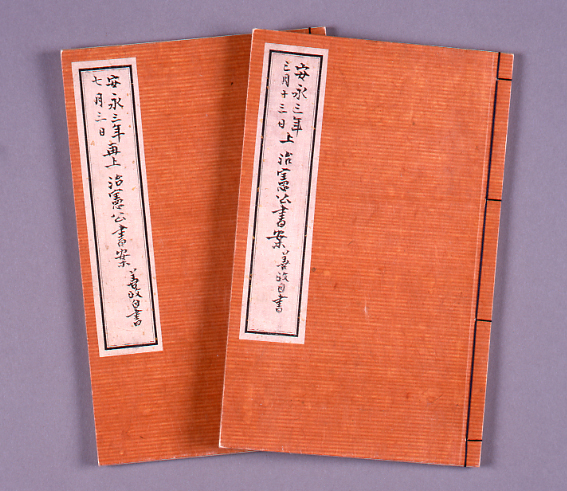 安永三年
三月十三日 上 治憲公書案 善政自書
安永三年
七月三日 再上 治憲公書案 善政自書